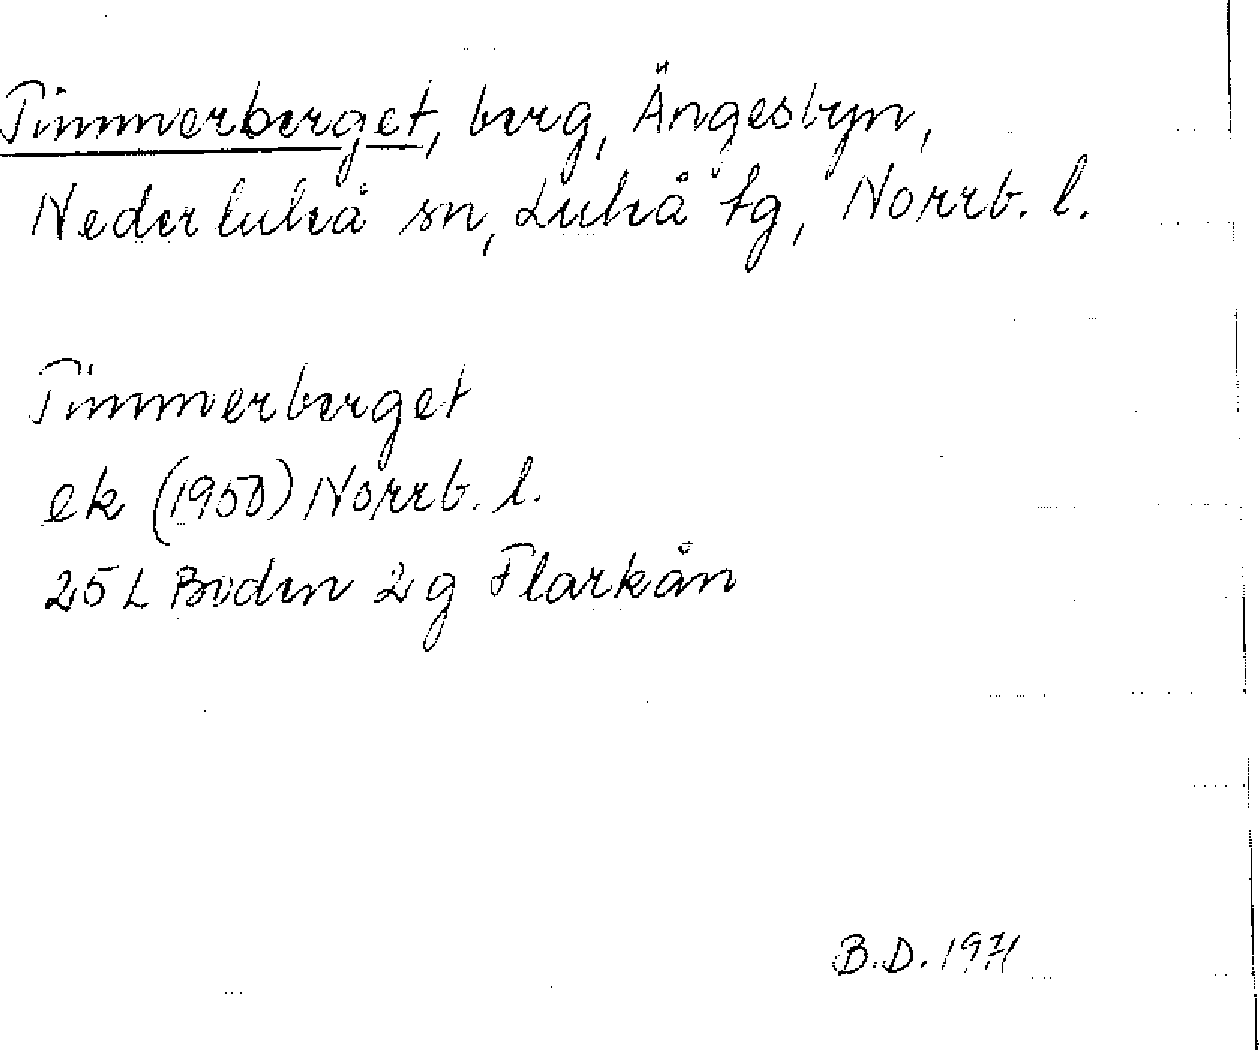 Timmerberget, berg, Ängesbyn,
Nederluleå sn, Luleå tg, Norrb. l.
Timmerberget
ek (1950) Norrb. l.
25 L Boden 2 g Flarkån
B.D. 1971